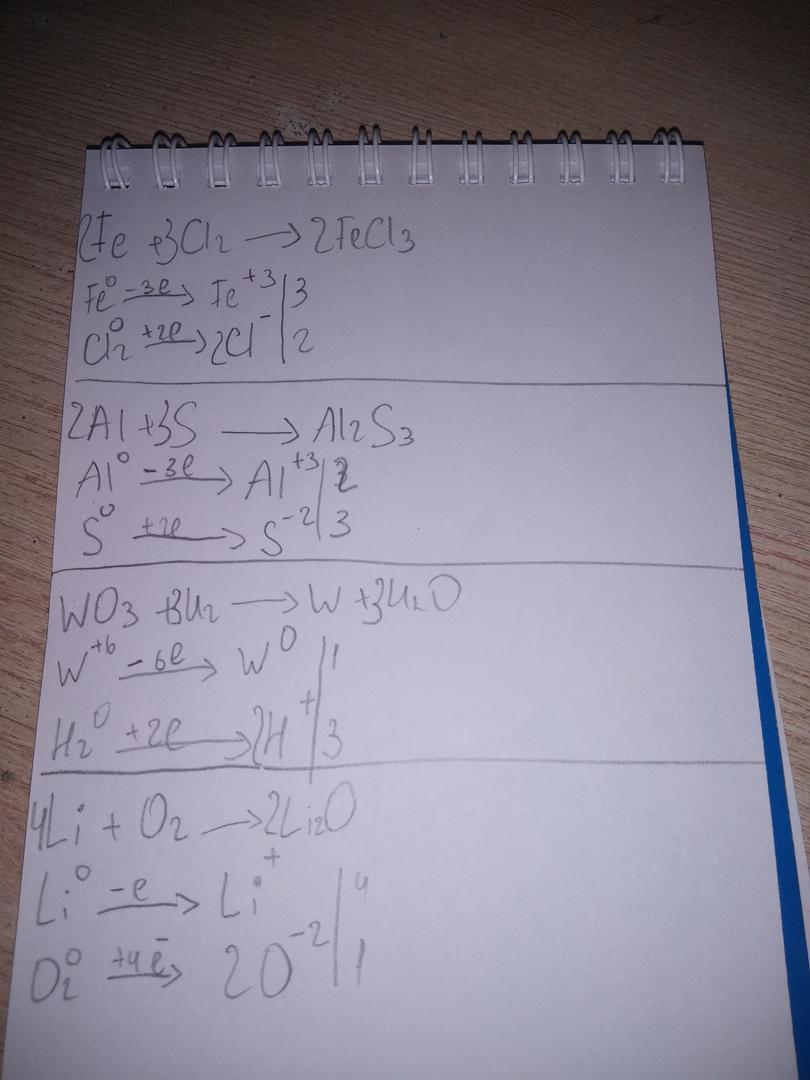 2Fe + 3Cl₂ → 2FeCl₃
Fe⁰ -3e→ Fe⁺³ | 3
Cl₂⁰ +2e→ 2Cl⁻ | 2
2Al + 3S → Al₂S₃
Al⁰ -3e→ Al⁺³ | 2
S⁰ +2e→ S⁻² | 3
WO₃ + 3H₂ → W + 3H₂O
W⁺⁶ -6e→ W⁰ | 1
H₂⁰ +2e→ 2H⁺ | 3
4Li + O₂ → 2Li₂O
Li⁰ -e→ Li⁺ | 4
O₂⁰ +4ē→ 2O⁻² | 1